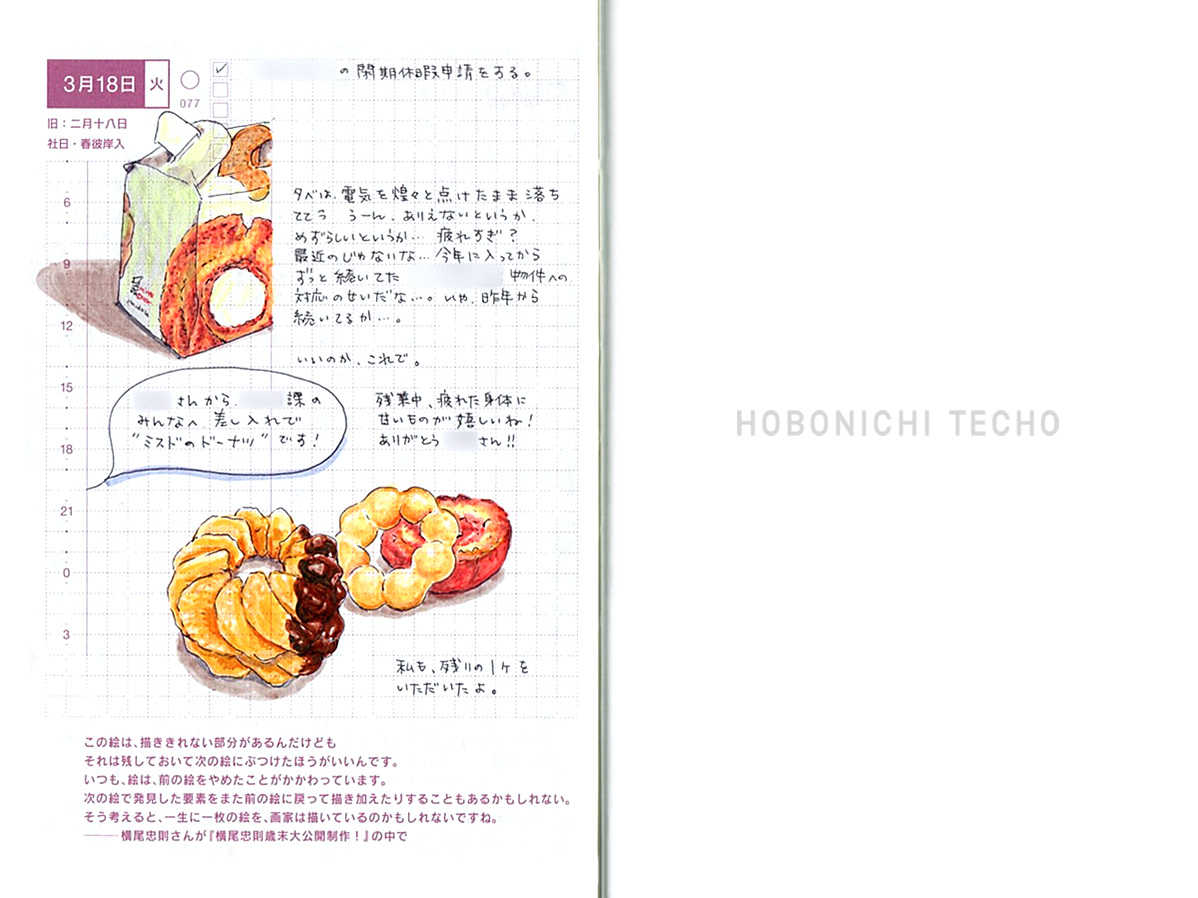 3月18日 火
077
旧：二月十八日
社日・春彼岸入
の閑期休暇申請をする。
夕べは、電気を煌々と点けたまま落ち
ててう うーん、ありえないというか、
めずらしいというか… 疲れすぎ？
最近のじゃないな… 今年に入ってから
ずっと続いてた 物件への
対応のせいだな…。いや、昨年から
続いてるか…。
いいのか、これで。
さんから、 課の
みんなへ 差し入れで
"ミスドのドーナツ"です！
残業中、疲れた身体に
甘いものが嬉しいね！
ありがとう さん!!
6
9
12
15
18
21
0
3
私も、残りの1ヶを
いただいたよ。
この絵は、描ききれない部分があるんだけども
それは残しておいて次の絵にぶつけたほうがいいんです。
いつも、絵は、前の絵をやめたことがかかわっています。
次の絵で発見した要素をまた前の絵に戻って描き加えたりすることもあるかもしれない。
そう考えると、一生に一枚の絵を、画家は描いているのかもしれないですね。
――横尾忠則さんが『横尾忠則歳末大公開制作！』の中で
HOBONICHI TECHO